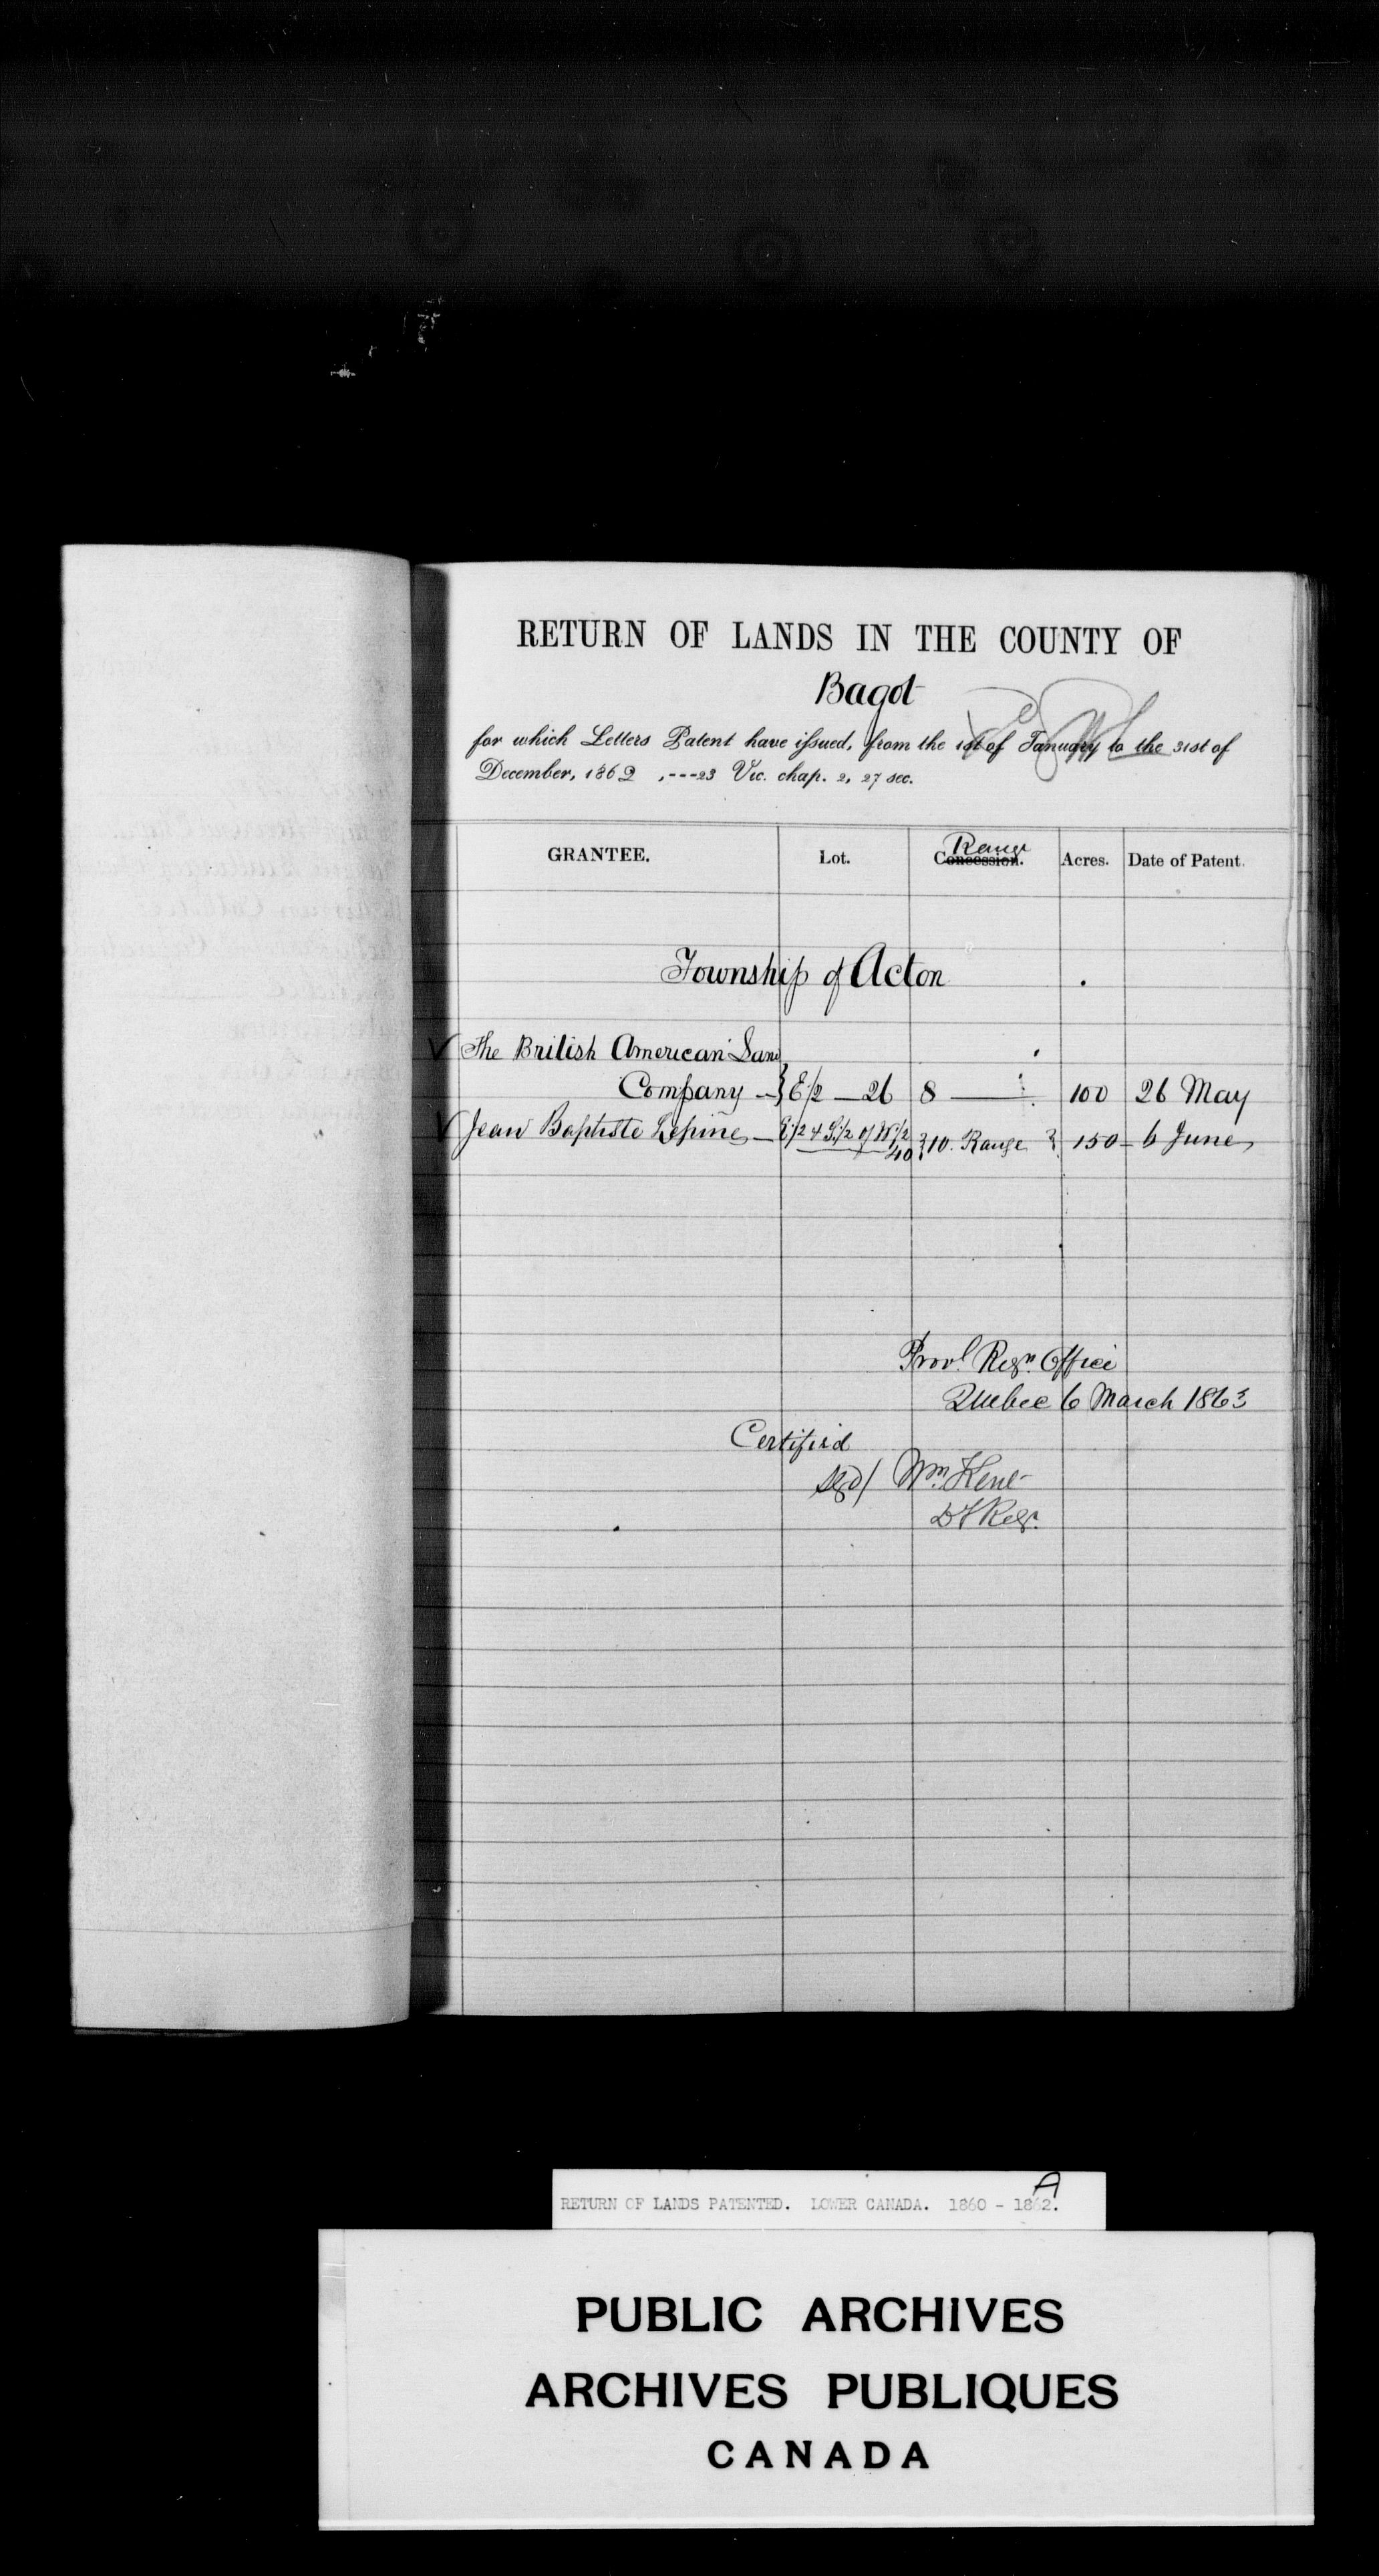 RETURN OF LANDS IN THE COUNTY OF
Bagot
for which Letters Patent have issued, from the 1st of January to the 31st of
December, 1862 ,---23 Vic. chap. 2, 27 sec.
Range
GRANTEE. Lot. Concession. Acres. Date of Patent.
Township of Acton
The British American Land
Company — } E 1/2 — 26 8 — 100 26 May
Jean Baptiste Lepine — E 1/2 & S 1/2 of W 1/2
40 } 10. Range } 150 — 6 June
Provl. Regn. Office
Quebec 6 March 1863
Certified
sgd/ Wm. Kent
D P Regr.
RETURN OF LANDS PATENTED. LOWER CANADA. 1860 - 1862.
A
PUBLIC ARCHIVES
ARCHIVES PUBLIQUES
CANADA